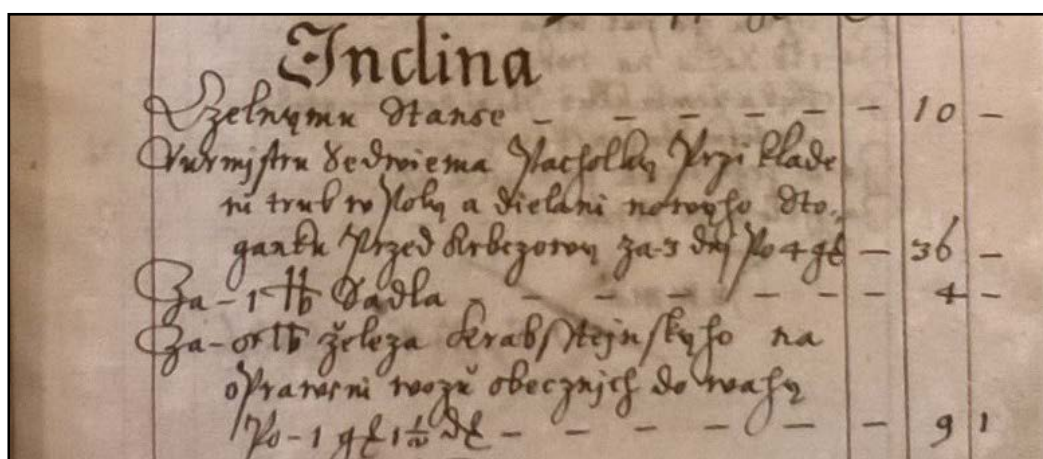 Inclina
Czelnymu Stanse — — — — — — 10 —
Rurmistru Sedwiema Pacholky Przi klade
ni trub w Poly a dielani nowyho Sto,
ganku Przed Krbczowy za 3 dnj Po 4 gř — 36 —
Za – 1 ℔ Sadla — — — — — — — 4 —
Za – ℔ železa Krabsstejnskyho na
oPraweni wozů obecznjch do wahy
Po – 1 gř 1½ dř — — — — — — 9 1